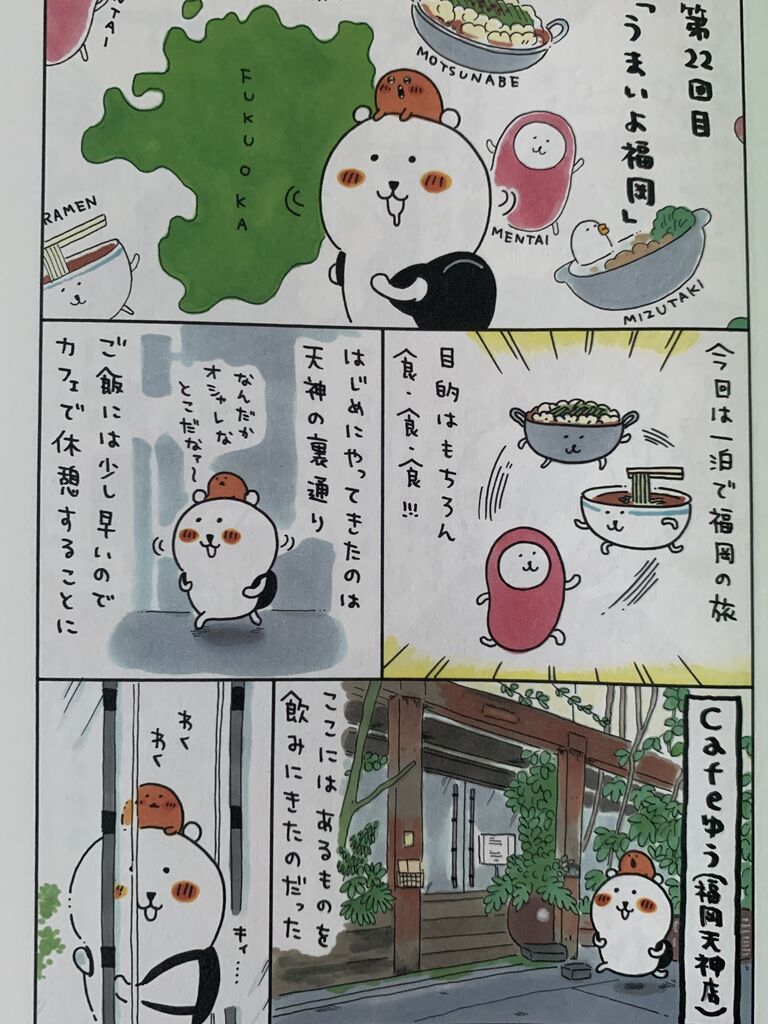 第22回目
「うまいよ福岡」
MOTSUNABE
FUKUOKA
MENTAI
MIZUTAKI
RAMEN
今回は一泊で福岡の旅
目的はもちろん
食・食・食!!!
はじめにやってきたのは
天神の裏通り
なんだか
オシャレな
とこだなァ〜
ご飯には少し早いので
カフェで休憩することに
Cafeゆう(福岡天神店)
ここにはあるものを
飲みにきたのだった
わく
わく
キィ…